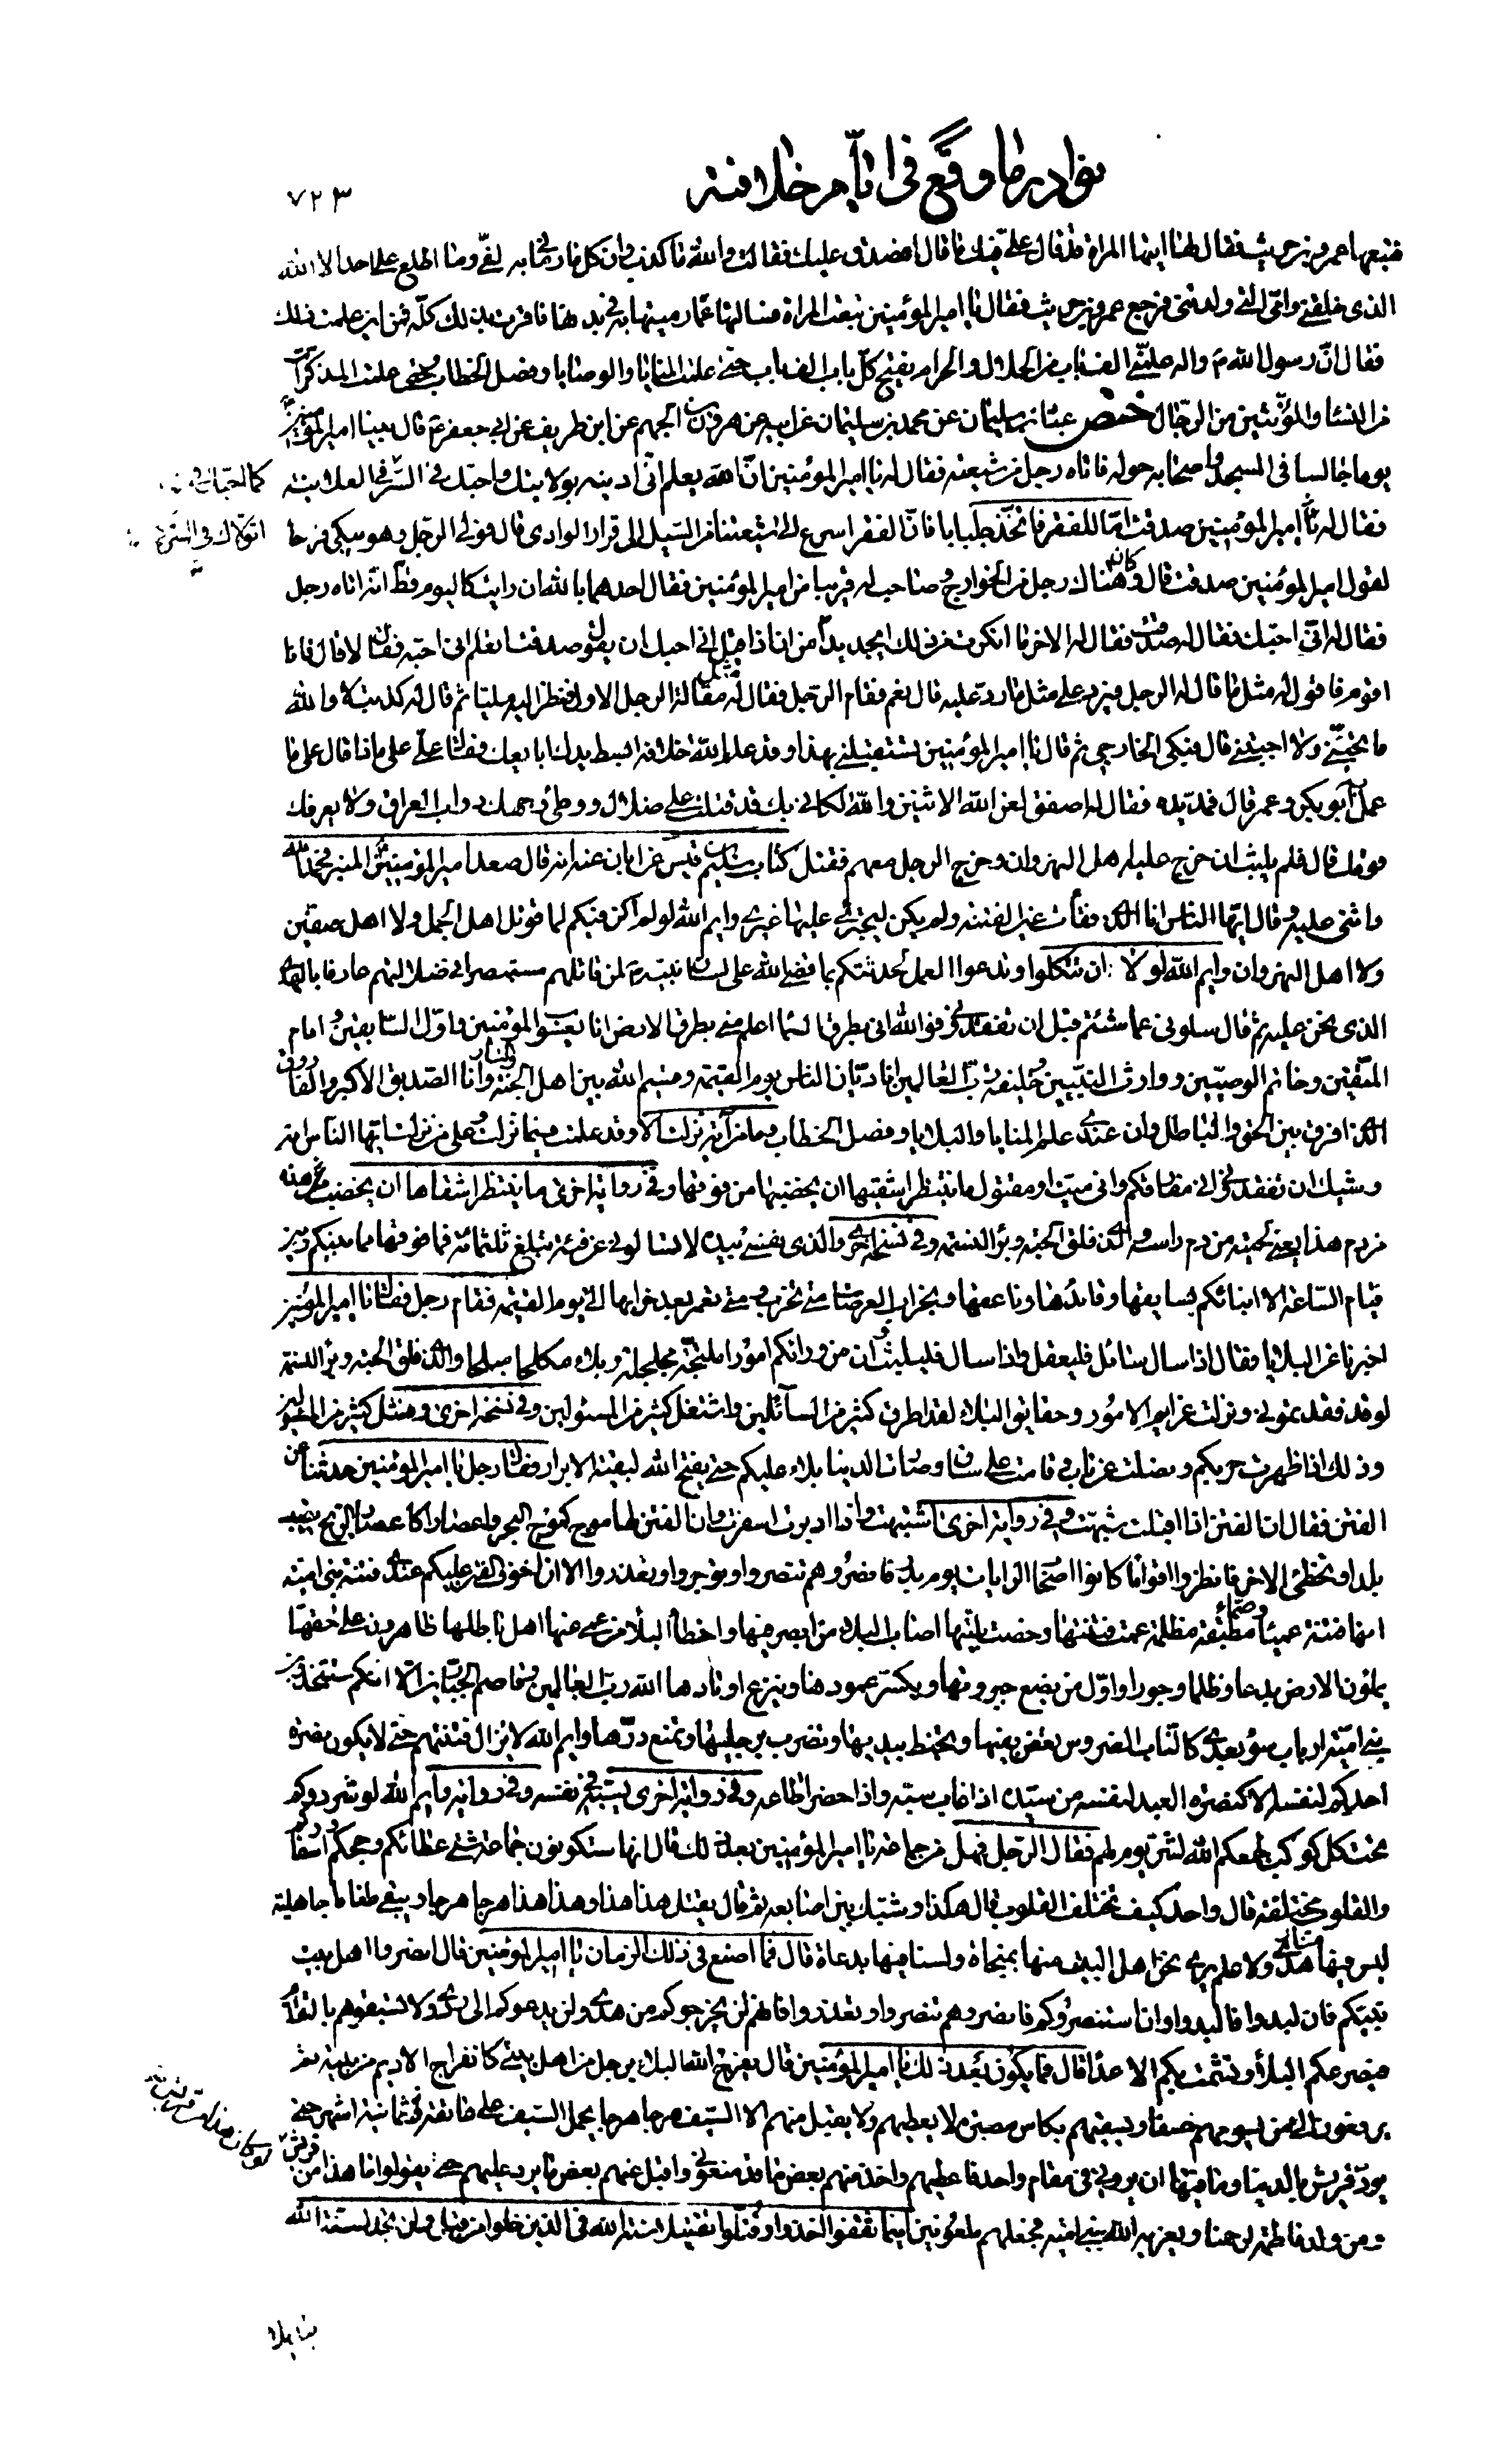 نوادر ما وقع في ايّام خلافته
٧٢٣
فتبعها عمرو بن حريث فقال لها ايتها المراة قد قال علي فيك ما قال ايصدق عليك فقالت والله ما كذب وان كل ما رماني به لفيّ وما اطلع علي احد الا الله
الذي خلقني وامّي التي ولدتني فرجع عمرو بن حريث فقال يا امير المؤمنين تبعت المراة فسالتها عمّا رميتها به في بدنها فاقرت بذلك كلّه فمن اين علمت ذلك
فقال انّ رسول الله ص واله علمني الف باب من الحلال والحرام يفتح كلّ باب الف باب حتى علمت المنايا والوصايا وفصل الخطاب وحتى علمت المذكرات
من النساء والمؤنثين من الرّجال ختص عباد بن سليمان عن محمد بن سليمان عن ابيه عن هرون بن الجهم عن ابن طريف عن ابي جعفر ع قال بينا امير المؤمنين
يوما جالسا في المسجد واصحابه حوله فاتاه رجل من شيعته فقال له يا امير المؤمنين انّ الله يعلم انّي ادينه بولايتك واحبّك في السّر كما احبك في العلانية
فقال له امير المؤمنين صدقت امّا للفقر فاتخذ جلبابا فانّ الفقر اسرع الى شيعتنا من السّيل الى قرار الوادي قال فولى الرّجل وهو يبكي فرحا
لقول امير المؤمنين صدقت قال وكان هناك رجل من الخوارج وصاحب له قريبا من امير المؤمنين فقال احدهما بالله ان رايت كاليوم قطّ انّه اتاه رجل
فقال له انّي احبّك فقال له صدقت فقال له الاخر ما انكرت من ذلك لم يجد بدّا من ان اذا قيل اني احبك ان يقول صدقت اتعلم اني احبه فقال لا قال فانا
اقوم فاقول له مثل ما قال له الرجل فيرد علي مثل ما ردّ عليه قال نعم فقام الرّجل فقال له مثل مقالة الرجل الاول فنظر اليه مليّا ثم قال له كذبت لا والله
ما تحبّني ولا احببتني قال فبكى الخارجي ثم قال يا امير المؤمنين تستقبلني بهذا وقد علم الله خلافه ابسط يدك ابايعك فقال علي على ماذا قال على ما
عمل ابو بكر وعمر قال فمدّ يده فقال له اصفق لعن الله الاثنين والله لكاني بك قد قتلت على ضلال ووطئ وجهك دواب العراق ولا يعرفك
قومك قال فلم يلبث ان خرج عليه اهل النهروان وخرج الرجل معهم فقتل كتاب سليم بن قيس عن ابان عنه انه قال صعد امير المؤمنين المنبر فحمد الله
واثنى عليه وقال ايّها الناس انا الذي فقات عين الفتنة ولم يكن ليجترئ عليها غيري وايم الله لو لم اكن فيكم لما قوتل اهل الجمل ولا اهل صفين
ولا اهل النهروان وايم الله لولا ان تتكلوا وتدعوا العمل لحدثتكم بما قضى الله على لسان نبيّه ص لمن قاتلهم مستبصرا في ضلالتهم عارفا بالهدى
الذي نحن عليه ثم قال سلوني عما شئتم قبل ان تفقدوني فوالله اني بطرق السماء اعلم مني بطرق الارض انا يعسوب المؤمنين واوّل السّابقين وامام
المتّقين وخاتم الوصيّين ووارث النبيّين وخليفة ربّ العالمين انا ديّان الناس يوم القيمة وقسيم الله بين اهل الجنة والنار وانا الصّديق الاكبر والفاروق
الذي افرق بين الحق والباطل وان عندي علم المنايا والبلايا وفصل الخطاب وما من آية نزلت الا وقد علمت فيما نزلت وعلى من نزلت ايّها النّاس انه
وشيك ان تفقدوني اني مفارقكم واني ميت او مقتول ما ينتظر اشقيها ان يخضبها من فوقها وفي رواية اخرى ما ينتظر اشقاها ان يخضب هذه
من دم هذا يعني لحيته من دم راسه والذي فلق الحبّة وبرأ النسمة وفي نسخة اخرى والذي نفسي بيده لا تسالوني عن فئة تبلغ ثلثمائة فما فوقها مما بينكم وبين
قيام السّاعة الا انباتكم بسايقها وقائدها وناعقها وبخراب العرصات متى تخرب ومتى تعمر بعد خرابها الى يوم القيمة فقام رجل فقال يا امير المؤمنين
اخبرنا عن البلايا فقال اذا سال سائل فليعقل واذا سئل فليلبث ان من ورائكم امورا ملتجّة مجلجلة وبلاء مكلحا مبلحا والذي فلق الحبّة وبرأ النسمة
لو قد فقدتموني ونزلت عزايم الامور وحقايق البلاء لقد اطرق كثير من السّائلين واشتغل كثير من المسئولين وفي نسخة اخرى وفشل كثير من المسئولين
وذلك اذا ظهرت حربكم ونصلت عن ناب وقامت على ساق وصارت الدنيا بلاء عليكم حتى يفتح الله لبقية الابرار فقال رجل يا امير المؤمنين حدثنا عن
الفتن فقال ان الفتن اذا اقبلت شبهت وفي رواية اخرى اشتبهت واذا ادبرت اسفرت وان الفتن لها موج كموج البحر واعصار كاعصار الرّيح تصيب
بلدا وتخطئ الاخر فانظروا اقواما كانوا اصحاب الرايات يوم بدر فانصروهم تنصروا وتوجروا وتعذروا الا ان اخوف الفتن عليكم عندي فتنة بني امية
انها فتنة عمياء وصمّاء مطبقة مظلمة عمت فتنتها وخصت بليّتها اصاب البلاء من ابصر فيها واخطأ البلاء من عمي عنها اهل باطلها ظاهرون على اهل حقها
يملؤن الارض بدعا وظلما وجورا واوّل من يضع جبروتها ويكسر عمودها وينزع اوتادها الله ربّ العالمين وقاصم الجبّارين الا انكم ستجدون
بني اميّة ارباب سوء بعدي كالنّاب الضروس تعض بفيها وتخبط بيديها وتضرب برجليها وتمنع درّها وايم الله لا يزال فتنتهم حتى لا يكون نصرة
احدكم لنفسه الا كنصرة العبد لنفسه من سيّده اذا غاب سبّه واذا حضر اطاعه وفي رواية اخرى يسبّه في نفسه وفي رواية وايم الله لو شردوكم
تحت كل كوكب لجمعكم الله لشرّ يوم لهم فقال الرّجل فهل من جماعة يا امير المؤمنين بعد ذلك قال انها ستكونون جماعة شتى عطاؤكم وحجكم واسفاركم
والقلوب مختلفة قال واحد كيف تختلف القلوب قال هكذا وشبّك بين اصابعه ثم قال يقتل هذا هذا وهذا هذا هرجا هرجا ويبقى طغاما جاهلية
ليس فيها منار هدى ولا علم يرى نحن اهل البيت منها بمنجاة ولسنا فيها بدعاة قال فما اصنع في ذلك الزمان يا امير المؤمنين قال انظروا اهل بيت
نبيّكم فان لبدوا فالبدوا وان استنصروكم فانصروهم تنصروا وتعذروا فانهم لن يخرجوكم من هدى ولن يدعوكم الى ردى ولا تسبقوهم بالتقدّم
فيصرعكم البلاء وتشمت بكم الاعداء قال فما يكون بعد ذلك يا امير المؤمنين قال يفرّج الله البلاء برجل من اهل بيتي كانفراج الاديم من بيته ثم
يرفعون الى من يسومهم خسفا ويسقيهم بكاس مصبّرة ولا يعطيهم ولا يقبل منهم الا السّيف هرجا هرجا يحمل السّيف على عاتقه ثمانية اشهر حتى
يودّ قريش بالدنيا وما فيها ان يروني في مقام واحد فاعطيهم واخذ منهم بعض ما قد منعوني واقبل عنهم بعض ما يرد عليهم حتى يقولوا ما هذا من قريش
ومن ولد فاطمة لرحمنا ويغريه الله ببني اميّة فجعلهم ملعونين اينما ثقفوا اخذوا وقتّلوا تقتيلا سنة الله في الذين خلوا من قبل ولن تجد لسنة الله
تبديلا